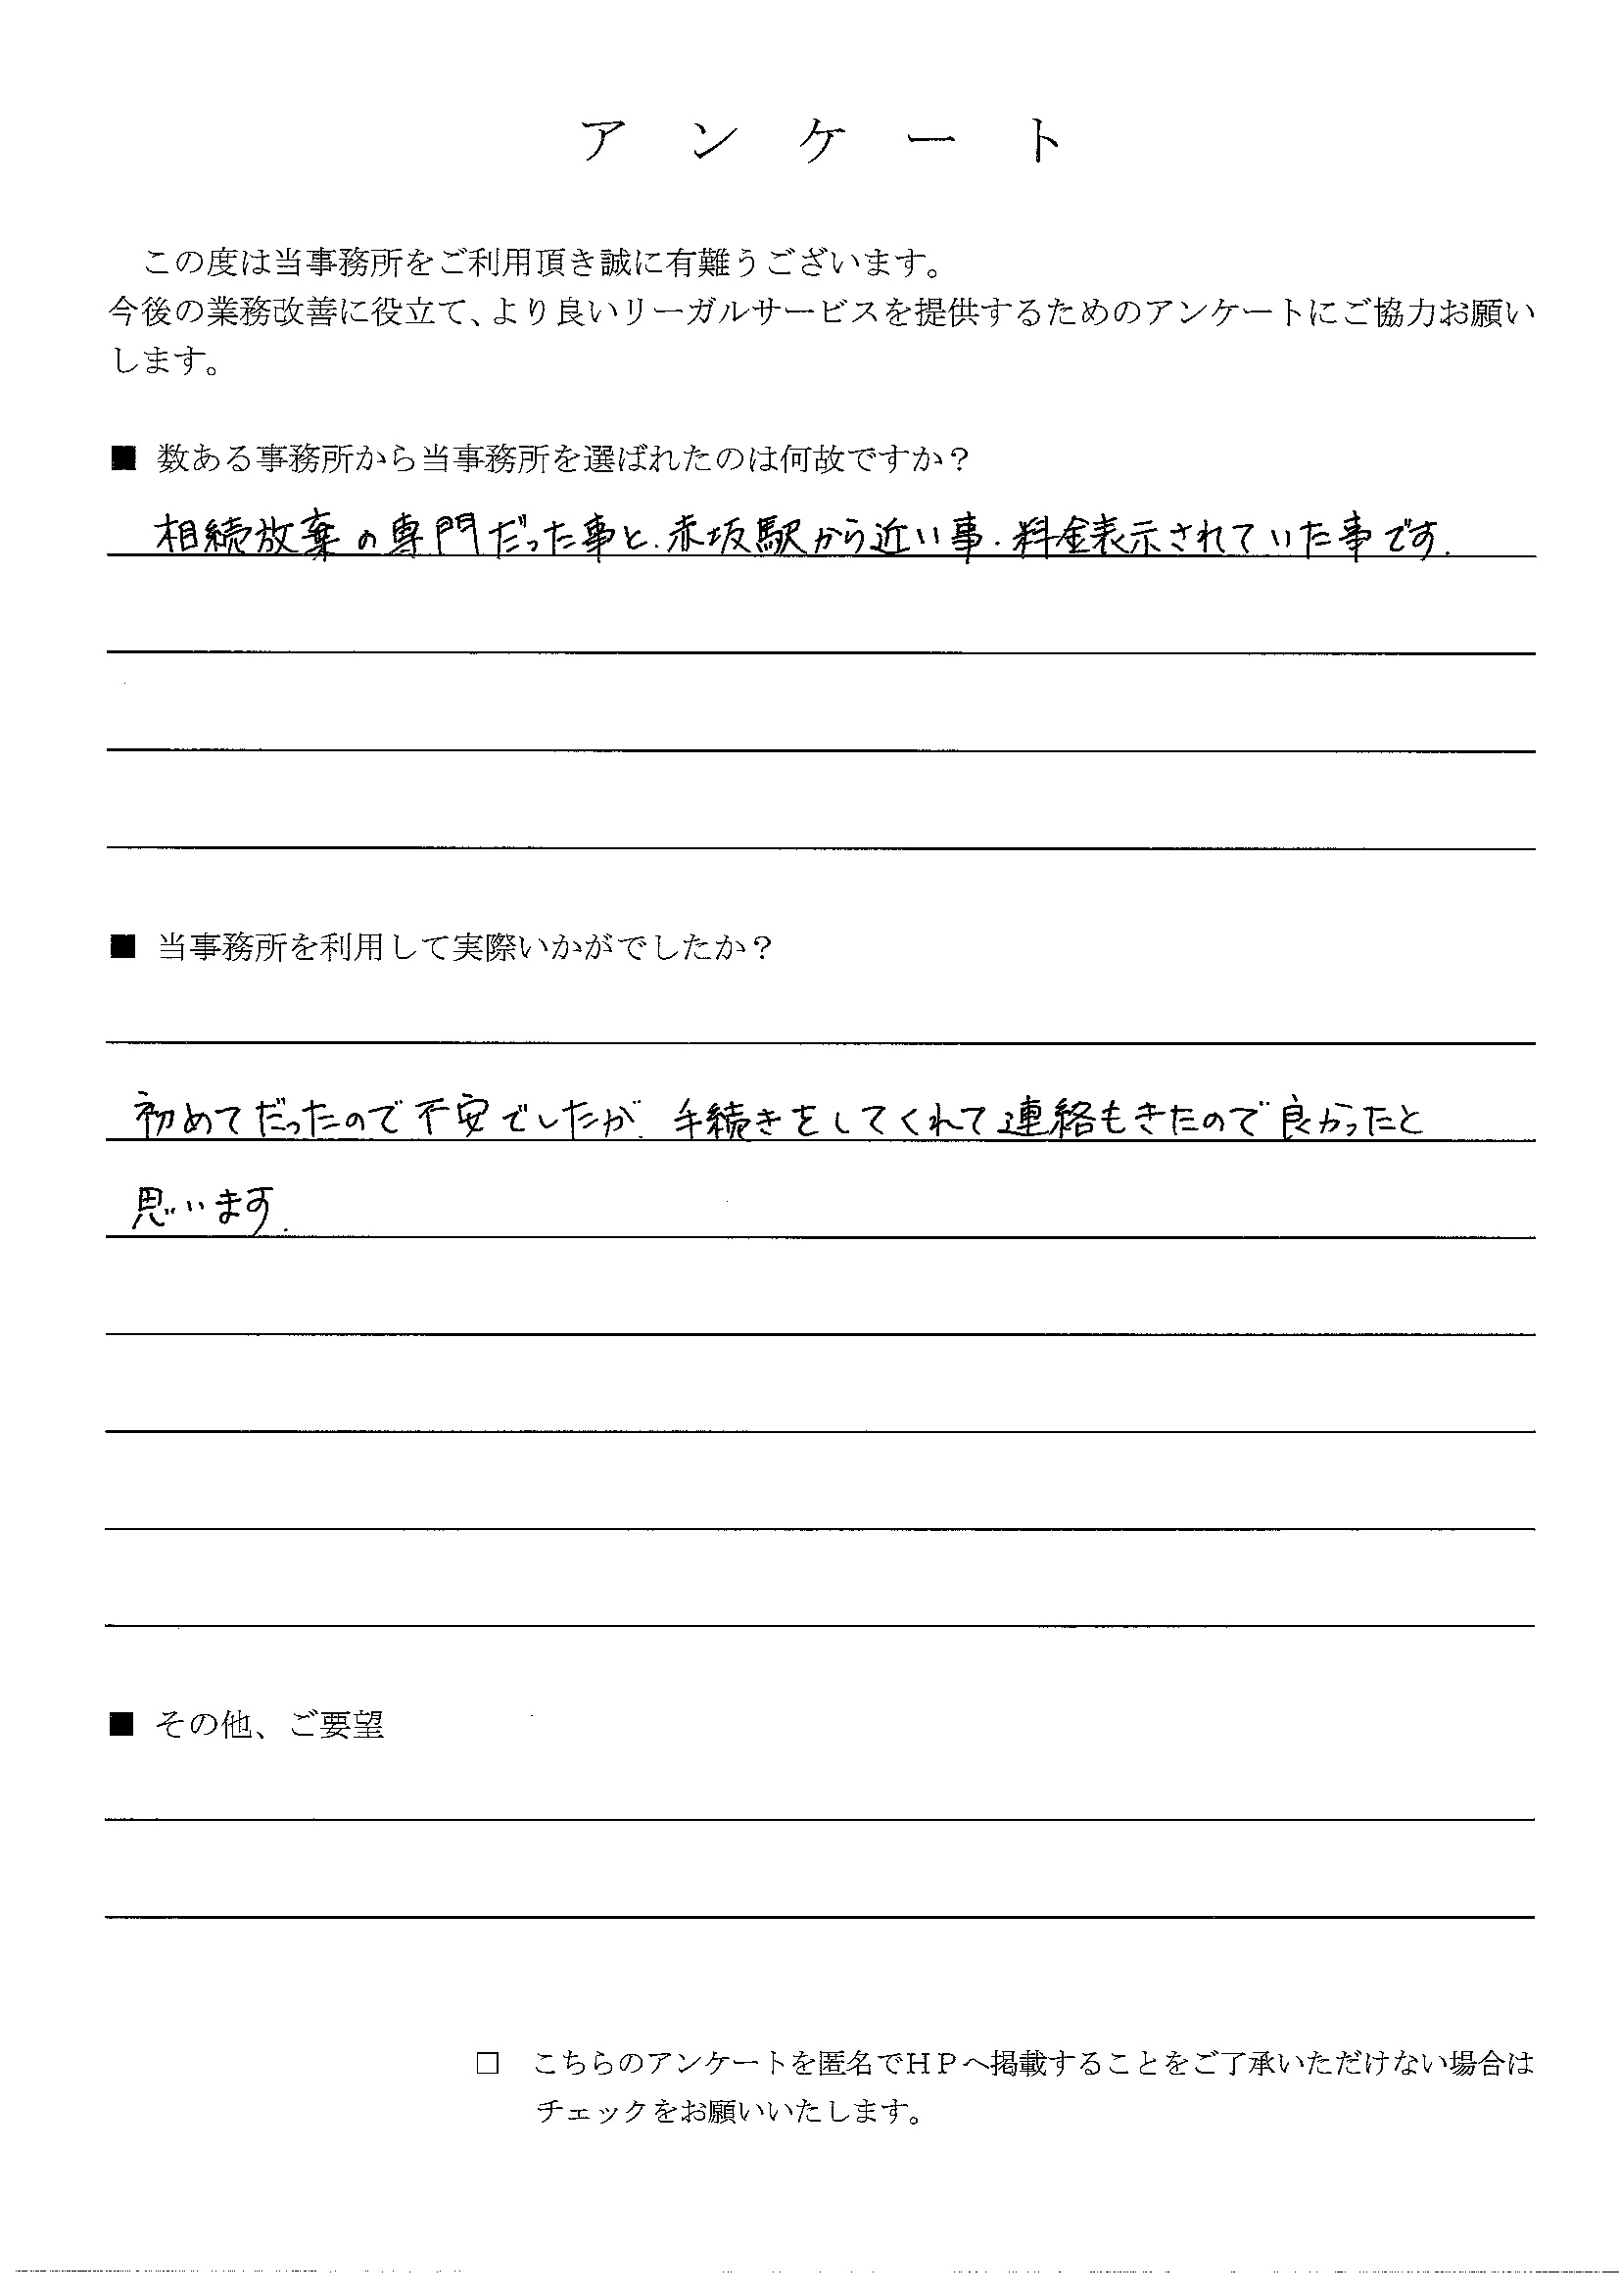 アンケート
この度は当事務所をご利用頂き誠に有難うございます。
今後の業務改善に役立て、より良いリーガルサービスを提供するためのアンケートにご協力お願い
します。
■ 数ある事務所から当事務所を選ばれたのは何故ですか？
相続放棄の専門だった事と、赤坂駅から近い事・料金表示されていた事です。
■ 当事務所を利用して実際いかがでしたか？
初めてだったので不安でしたが、手続きをしてくれて連絡もきたので良かったと
思います。
■ その他、ご要望
□ こちらのアンケートを匿名でＨＰへ掲載することをご了承いただけない場合は
チェックをお願いいたします。